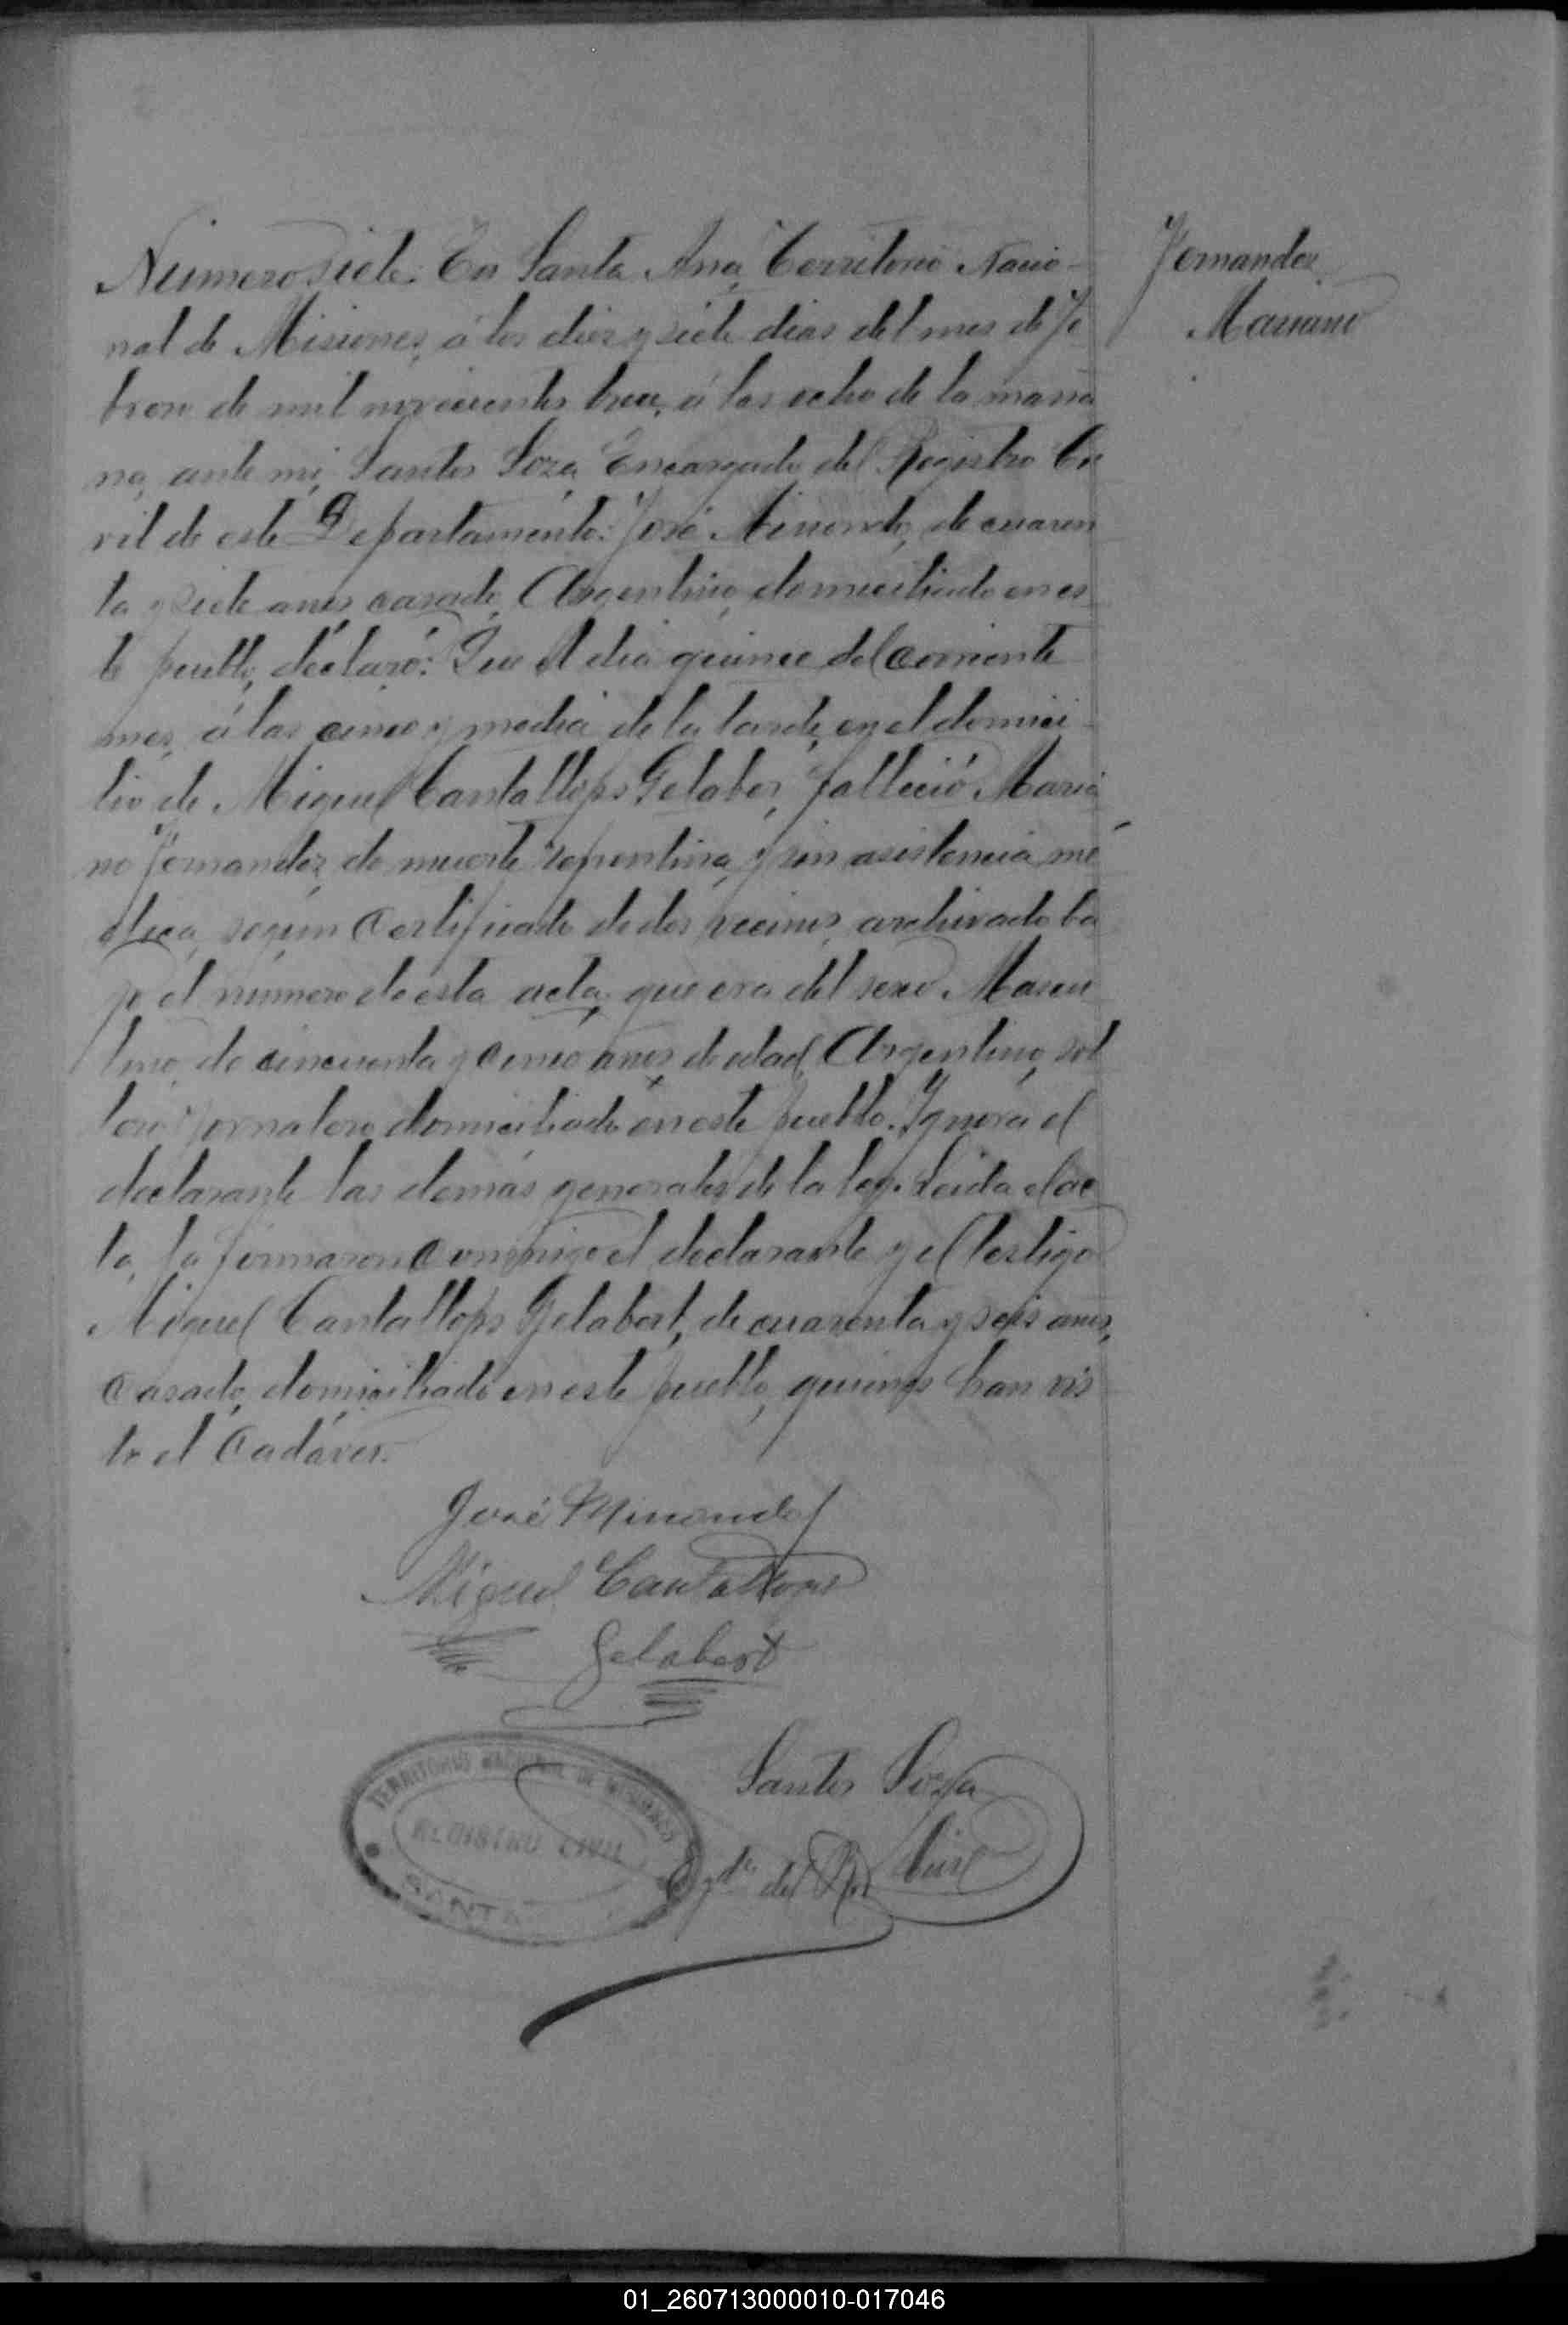 Número Siete: En Santa Ana, Territorio Nacio-
nal de Misiones, á los diez y siete dias del mes de Fe
brero de mil novecientos trece, á las ocho de la maña
na, ante mi, Santos Soza, Encargado del Registro Ci
vil de este Departamento: José Minondo, de cuaren
ta y siete años, casado, Argentino, domiciliado en es
te pueblo, declaró: Que el dia quince del corriente
mes, á las cinco y media de la tarde, en el domici-
lio de Miguel Cantallops Gelaber, falleció Maria
no Fernandez, de muerte repentina, y sin asistencia mé
dica, según certificado de dos vecinos, archivado ba
jo el número de esta acta, que era del sexo Mascu
lino, de cincuenta y cinco años, de edad, Argentino, sol
tero jornalero domiciliado en este pueblo. Ignora el
declarante las demás generales de la ley. Leida el ac
ta, la firmaron conmigo el declarante y el testigo
Miguel Cantallops Gelabert, de cuarenta y seis años,
casado, domiciliado en este pueblo, quienes han vis
to el Cadáver.
José Minondo
Miguel Cantallops
Gelabert
Santos Soza
Egdo del Rº Civil
TERRITORIO NACIONAL DE MISIONES
REGISTRO CIVIL
SANTA
Fernandez
Mariano
01_260713000010-017046